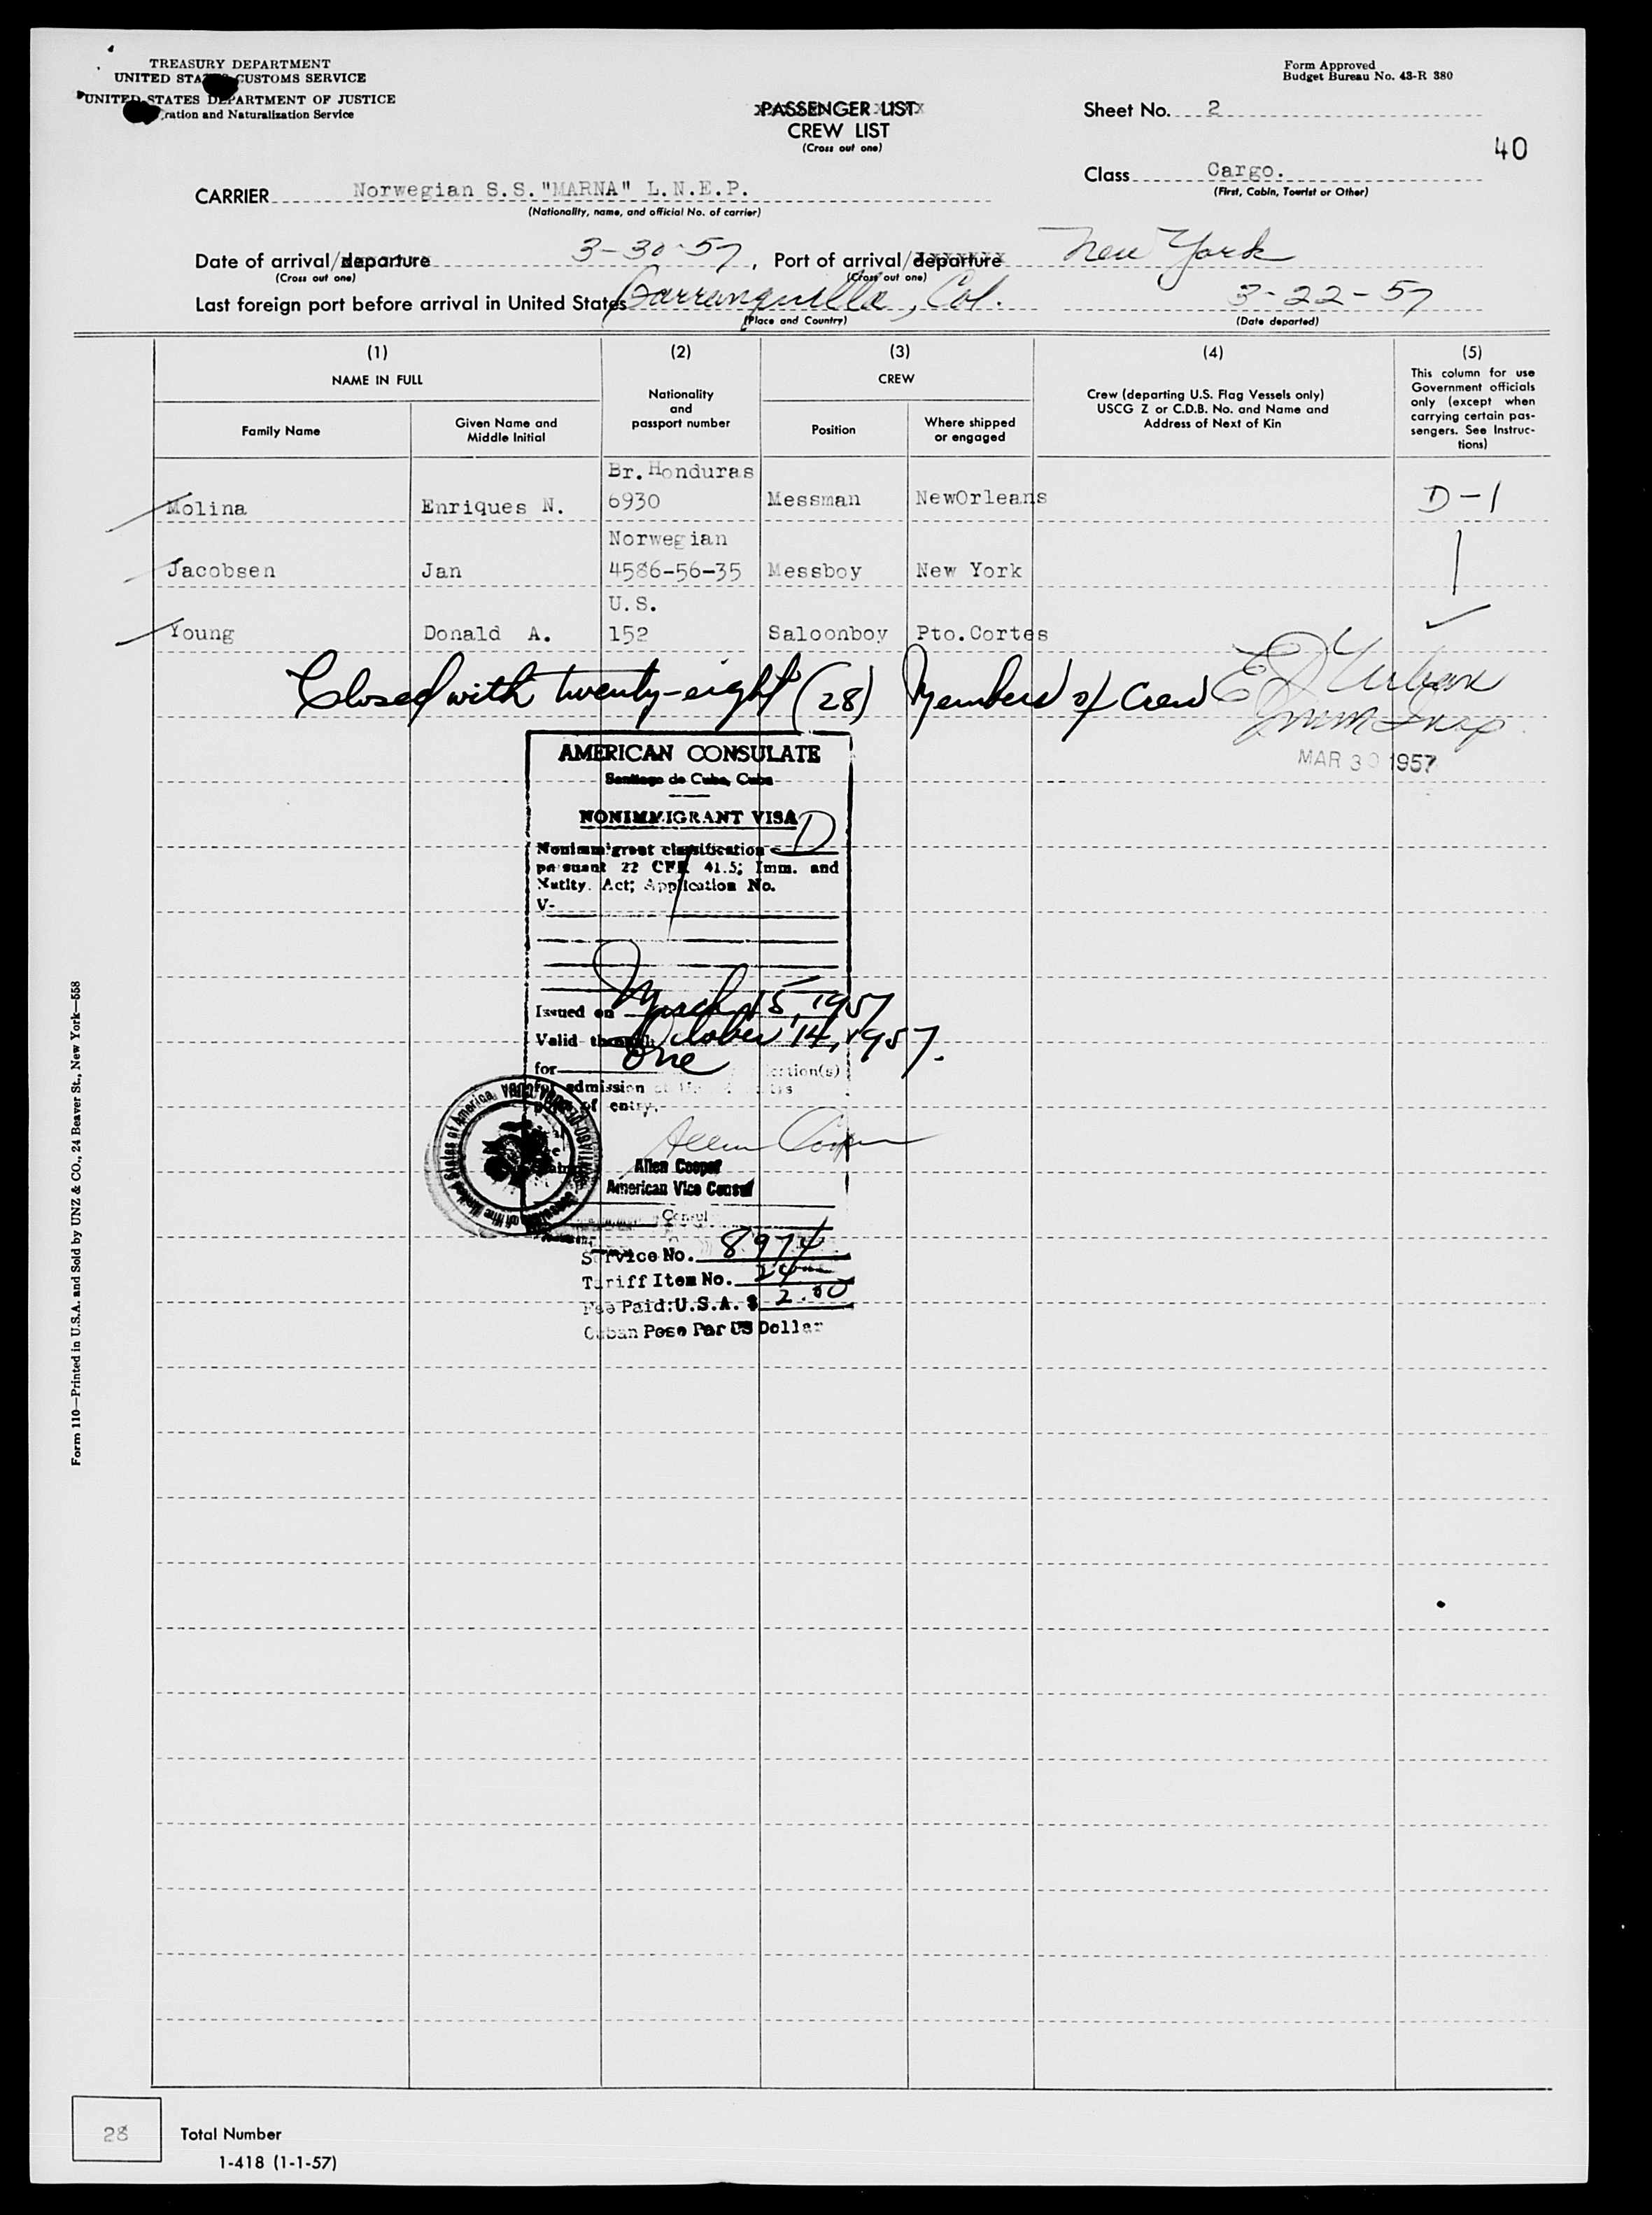 TREASURY DEPARTMENT
UNITED STATES CUSTOMS SERVICE
UNITED STATES DEPARTMENT OF JUSTICE
ration and Naturalization Service
Form Approved
Budget Bureau No. 43-R 380
PASSENGER LIST
CREW LIST
(Cross out one)
Sheet No. 2
40
Class Cargo.
(First, Cabin, Tourist or Other)
CARRIER Norwegian S.S."MARNA" L.N.E.P.
(Nationality, name, and official No. of carrier)
Date of arrival/departure 3-30-57, Port of arrival/departure New York
(Cross out one) (Cross out one)
Last foreign port before arrival in United States Barranquilla, Col. 3-22-57
(Place and Country) (Date departed)
(1) (2) (3) (4) (5)
NAME IN FULL
Family Name
Given Name and
Middle Initial
Nationality
and
passport number
CREW
Position
Where shipped
or engaged
Crew (departing U.S. Flag Vessels only)
USCG Z or C.D.B. No. and Name and
Address of Next of Kin
This column for use
Government officials
only (except when
carrying certain pas-
sengers. See Instruc-
tions)
Br.Honduras
Molina Enriques N. 6930 Messman NewOrleans D-1
Norwegian
Jacobsen Jan 4586-56-35 Messboy New York
U.S.
Young Donald A. 152 Saloonboy Pto.Cortes
Closed with twenty-eight (28) Members of Crew
Imm Insp
MAR 30 1957
AMERICAN CONSULATE
Santiago de Cuba, Cuba
NONIMMIGRANT VISA
Nonimmigrant classification D
pursuant 22 CFR 41.5; Imm. and
Natlty. Act; Application No.
V-
Issued on March 15, 1957
Valid through October 14, 1957.
for one
for admission
of entry.
Allen Cooper
Allen Cooper
American Vice Consul
Consul
Service No. 8974
Tariff Item No. 24
Fee Paid: U.S.A. $ 2.00
Cuban Peso Par US Dollar
Form 110—Printed in U.S.A. and Sold by UNZ & CO., 24 Beaver St., New York—558
28 Total Number
1-418 (1-1-57)